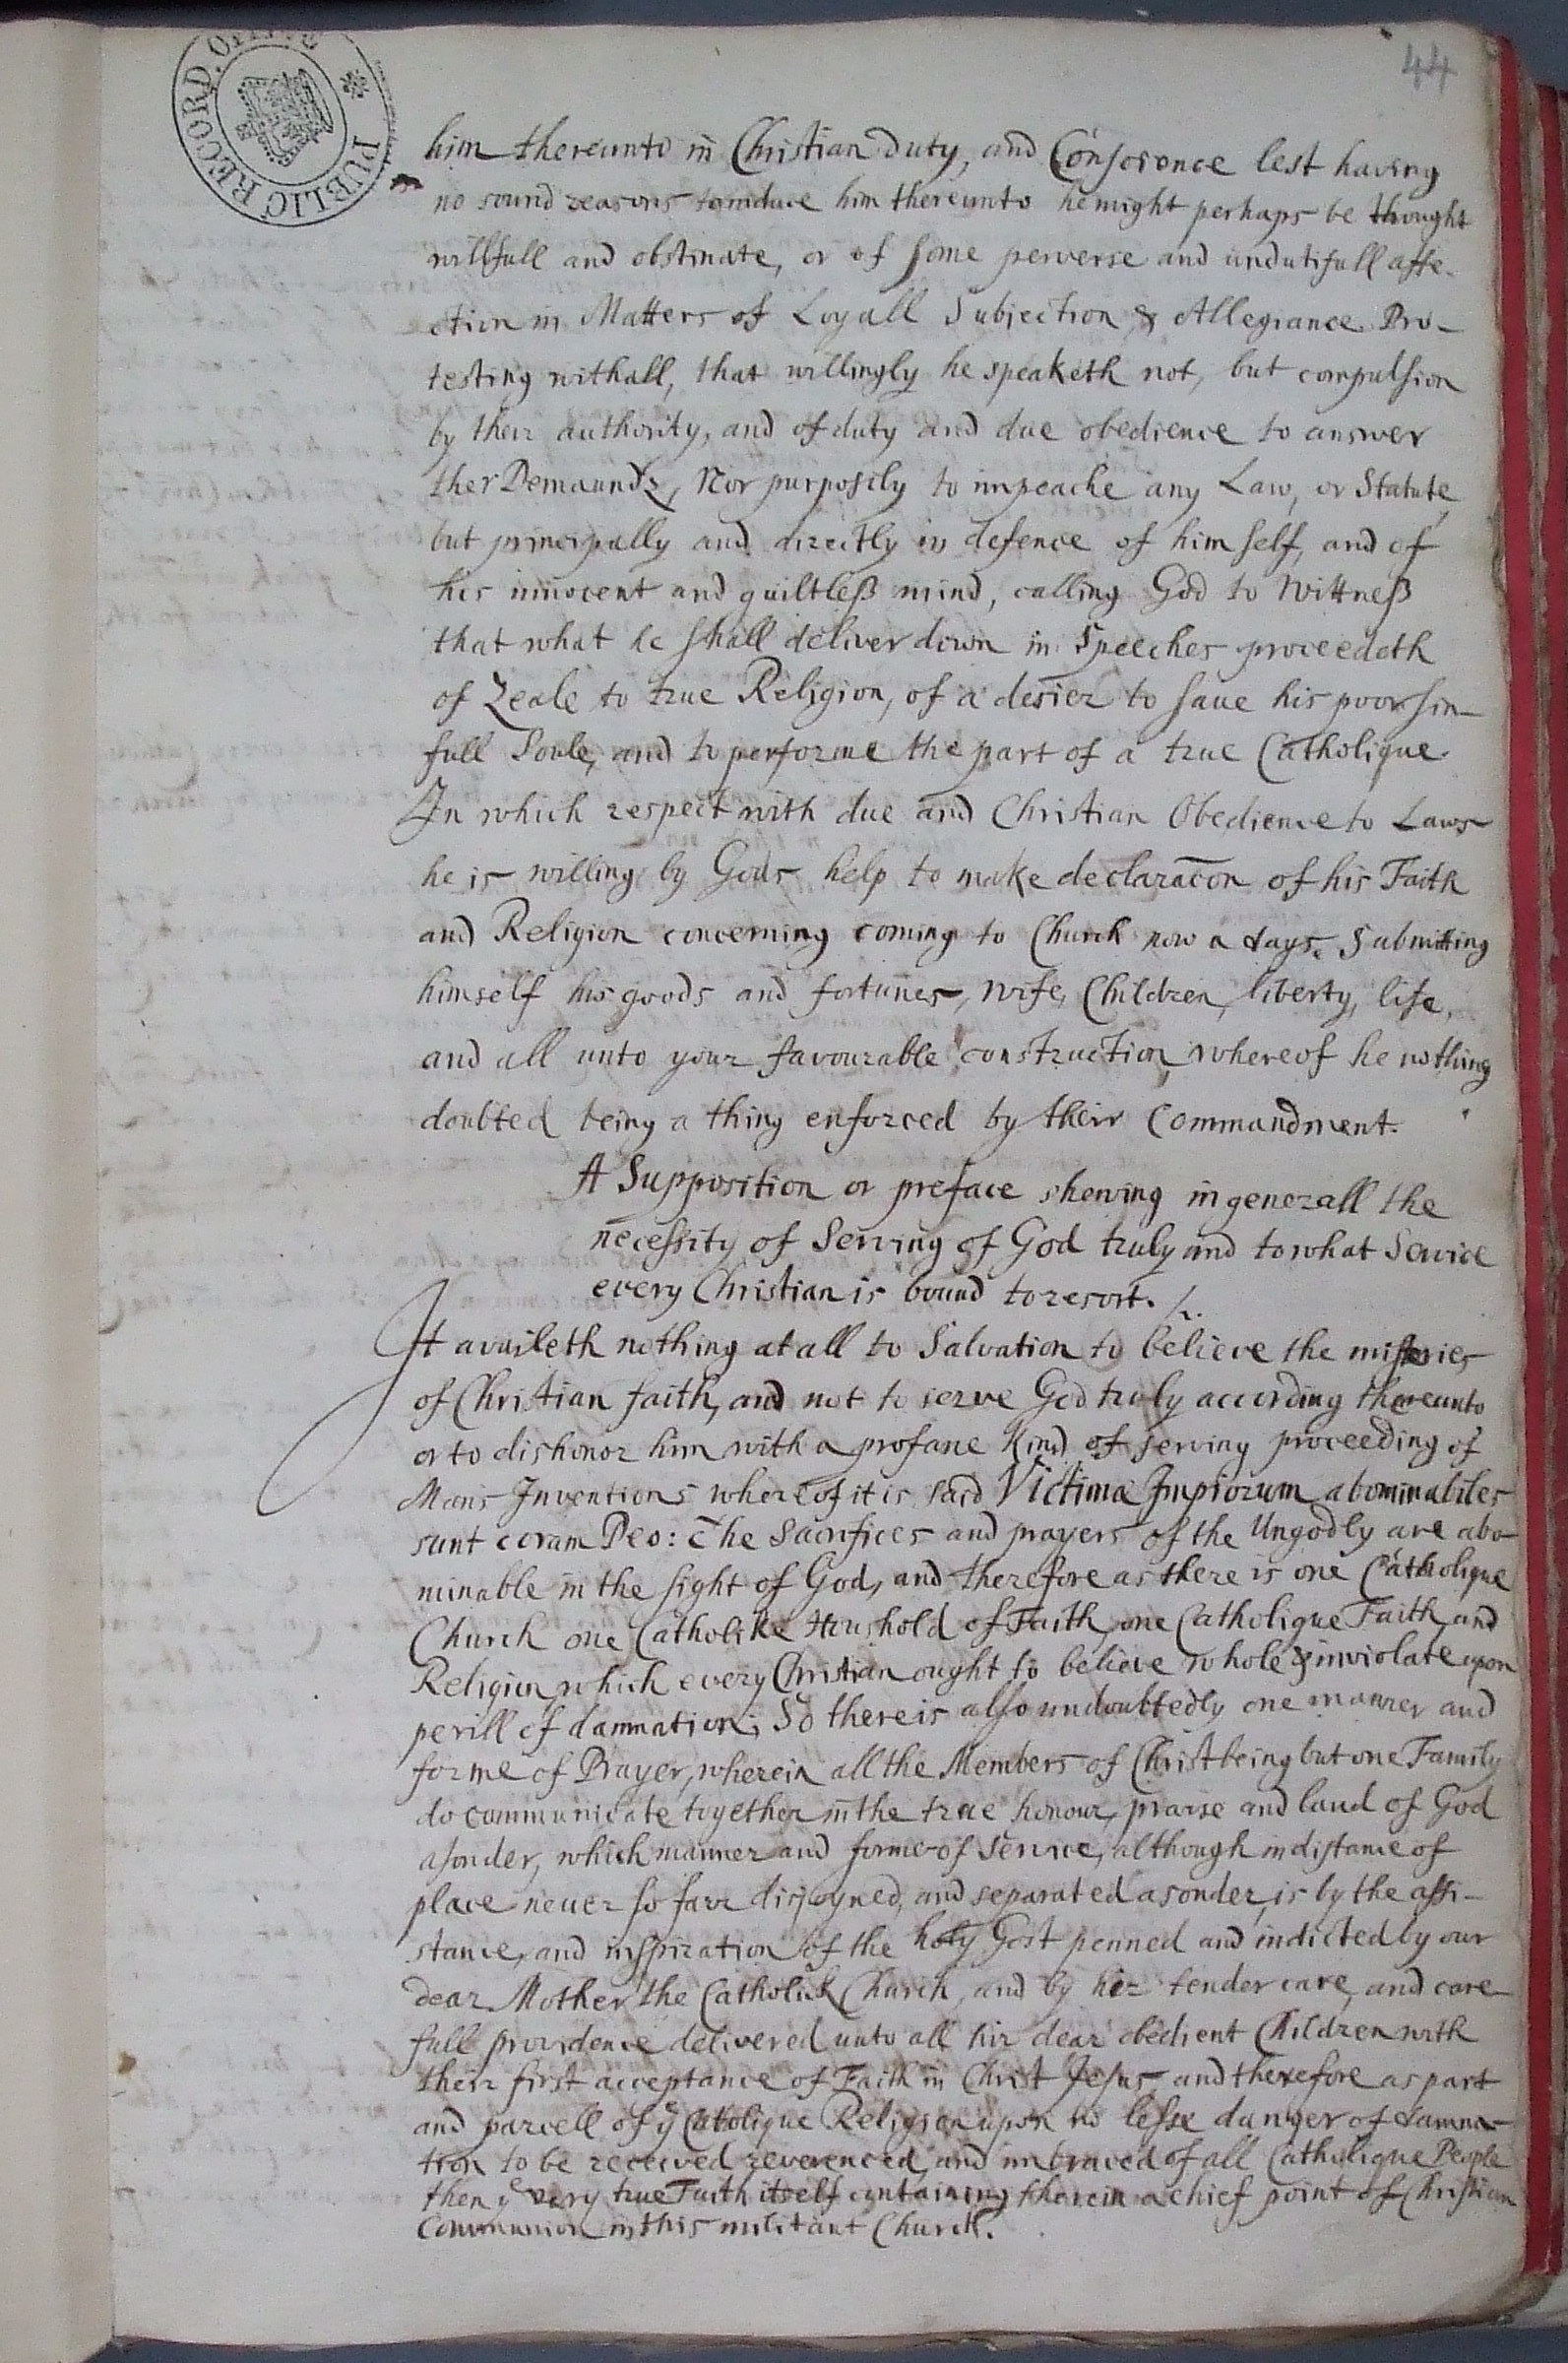 44
PUBLIC RECORD OFFICE
him thereunto in Christian duty, and Conscience lest having
no sound reasons to induce him thereunto he might perhaps be thought
willfull and obstinate, or of some perverse and undutifull affe-
ction in Matters of Loyall Subjection & Allegiance Pro-
testing withall, that willingly he speaketh not, but compulsion
by their authority, and of duty and due obedience to answer
ther Demaunds, Nor purposily to impeache any Law, or Statute
but principally and directly in defence of him self, and of
his innocent and guiltless mind, calling God to Wittness
that what he shall deliver down in Speeches proceedeth
of Zeale to true Religion, of a desier to saue his poor sin-
full Soule, and to performe the part of a true Catholique.
In which respect with due and Christian Obedience to Laws
he is willing by Gods help to make declaracon of his Faith
and Religion concerning coming to Church now a days. Submitting
himself his goods and fortunes, wife, Children, liberty, life,
and all unto your favourable construction, whereof he nothing
doubted being a thing enforced by their Commandment.
A Supposition or preface shewing in generall the
necessity of Serving of God truly and to what Service
every Christian is bound to resort. /.
It availeth nothing at all to Salvation to believe the misteries
of Christian faith, and not to serve God truly according thereunto
or to dishonor him with a profane Kind of serving proceeding of
Mans Inventions whereof it is said Victimæ Impiorum abominabiles
sunt coram Deo: The Sacrifices and prayers of the Ungodly are abo-
minable in the sight of God, and therefore as there is one Catholique
Church one Catholike Houshold of Faith, one Catholique Faith, and
Religion, which every Christian ought to believe whole & inviolate upon
perill of damnation; So there is also undoubtedly one manner and
forme of Prayer, wherein all the Members of Christ being but one Family
do communicate together in the true honour, praise and laud of God
asonder, which manner and forme of Service, although in distance of
place never so farr disjoyned, and separated asonder, is by the assi-
stance, and inspiration of the holy Gost penned and indicted by our
dear Mother the Catholick Church, and by her tender care, and care-
full providence delivered unto all hir dear obedient Children with
their first acceptance of Faith in Christ Jesus and therefore as part
and parcell of ye Catolique Religion upon no lesse danger of damna-
tion to be received reverenced, and imbraced of all Catholique People
then ye very true Faith itself containing therein a chief point of Christian
Communion in this militant Church.